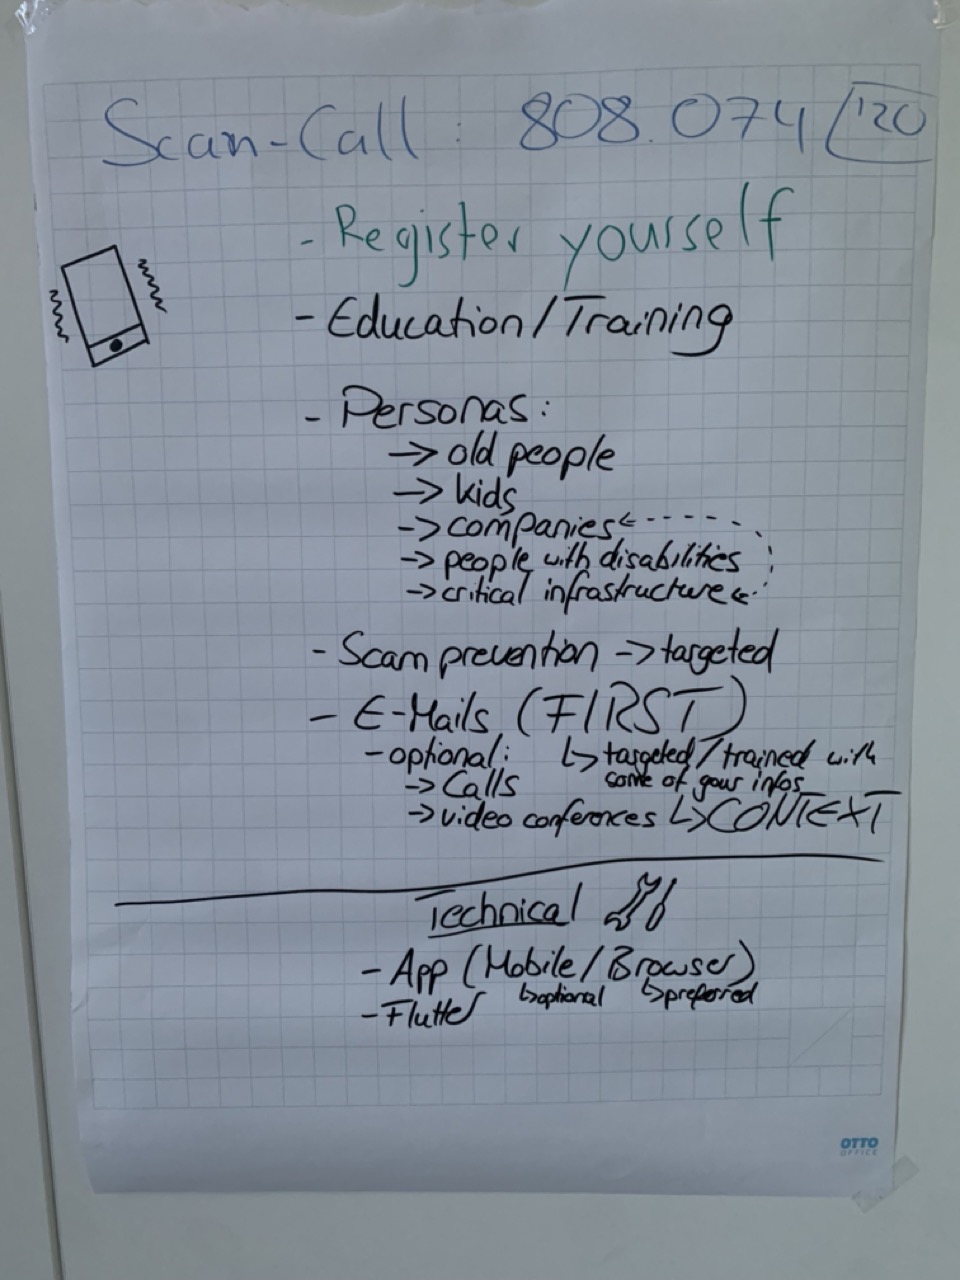 Scan-Call: 808.074/120
- Register yourself
- Education/Training
- Personas:
→ old people
→ kids
→ companies
→ people with disabilities
→ critical infrastructure
- Scam prevention → targeted
- E-Mails (FIRST)
- optional: ↳ targeted/trained with
→ Calls some of your infos
→ video conferences ↳ CONTEXT
Technical
- App (Mobile/Browser)
↳ optional ↳ preferred
- Flutter
OTTO
OFFICE